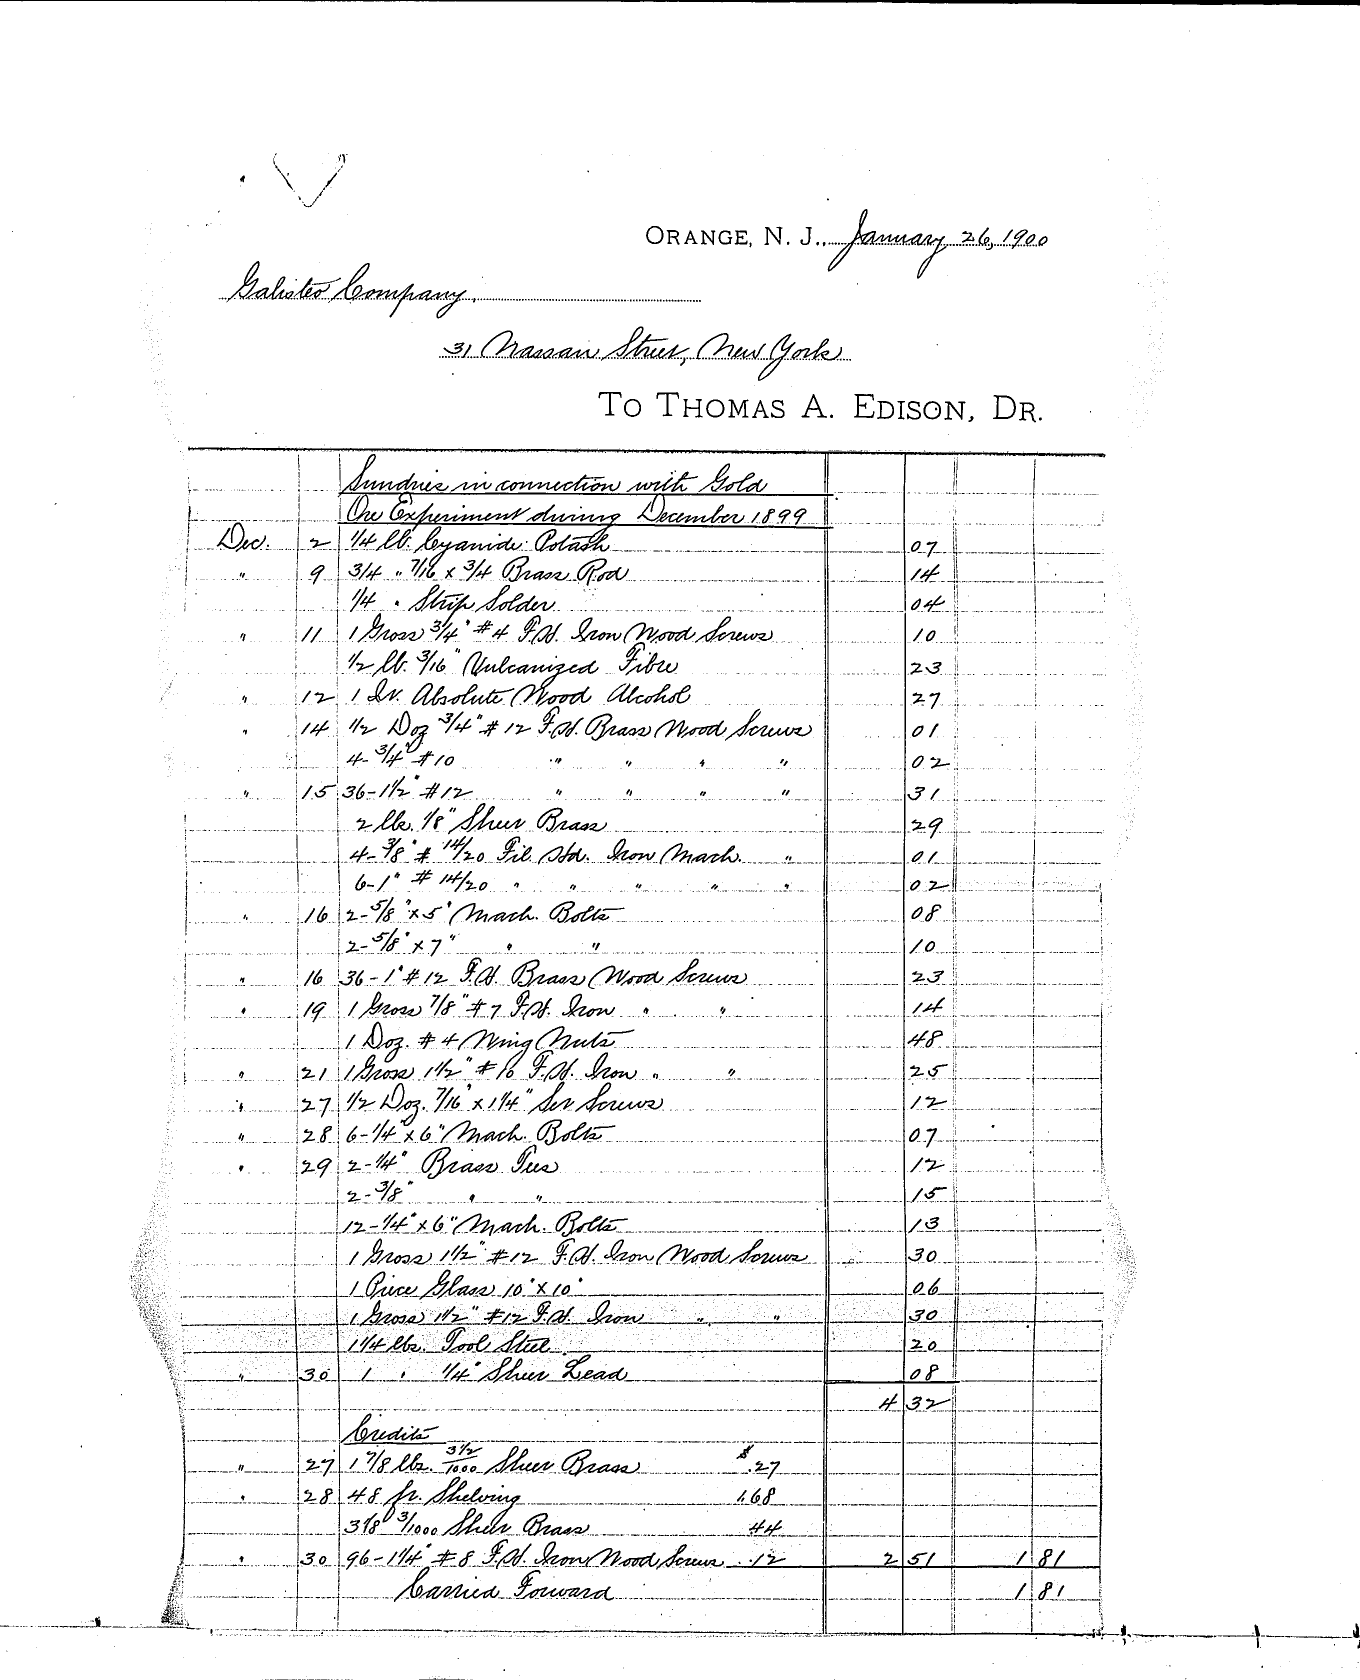 ORANGE, N. J., January 26, 1900
Galisteo Company,
31 Nassau Street, New York
TO THOMAS A. EDISON, DR.
Sundries in connection with Gold
Ore Experiment during December 1899
Dec. 2 1/4 lb. Cyanide Potash 07
" 9 3/4 " 7/16 x 3/4 Brass Rod 14
1/4 " Strip Solder 04
" 11 1 Gross 3/4" #4 F.H. Iron Wood Screws 10
1/2 lb. 3/16" Vulcanized Fibre 23
" 12 1 Qt. Absolute Wood Alcohol 27
" 14 1/2 Doz 3/4" #12 F.H. Brass Wood Screws 01
4-3/4" #10 " " " " 02
" 15 36-1 1/2" #12 " " " " 31
2 lbs. 1/8" Sheet Brass 29
4-3/8" # 14/20 Fil. Hd. Iron Mach. " 01
6-1" # 14/20 " " " " " 02
" 16 2-5/8" x 5" Mach. Bolts 08
2-5/8" x 7" " " 10
" 16 36-1" #12 F.H. Brass Wood Screws 23
" 19 1 Gross 7/8" #7 F.H. Iron " " 14
1 Doz. #4 Wing Nuts 48
" 21 1 Gross 1 1/2" #10 F.H. Iron " " 25
" 27 1/2 Doz. 7/16" x 1 1/4" Set Screws 12
" 28 6-1/4" x 6" Mach. Bolts 07
" 29 2-1/4" Brass Tees 12
2-3/8" " " 15
12-1/4" x 6" Mach. Bolts 13
1 Gross 1 1/2" #12 F.H. Iron Wood Screws 30
1 Piece Glass 10" x 10" 06
1 Gross 1 1/2" #12 F.H. Iron " " 30
1 1/4 lbs. Tool Steel 20
" 30 1 " 1/4" Sheet Lead 08
4 32
Credits
" 27 1 7/8 lbs. 3 1/2/1000 Sheet Brass $ .27
" 28 48 ft. Shelving 1.68
3 1/8" 3/1000 Sheet Brass 44
" 30 96-1 1/4" #8 F.H. Iron Wood Screws .12 2 51 1 81
Carried Forward 1 81